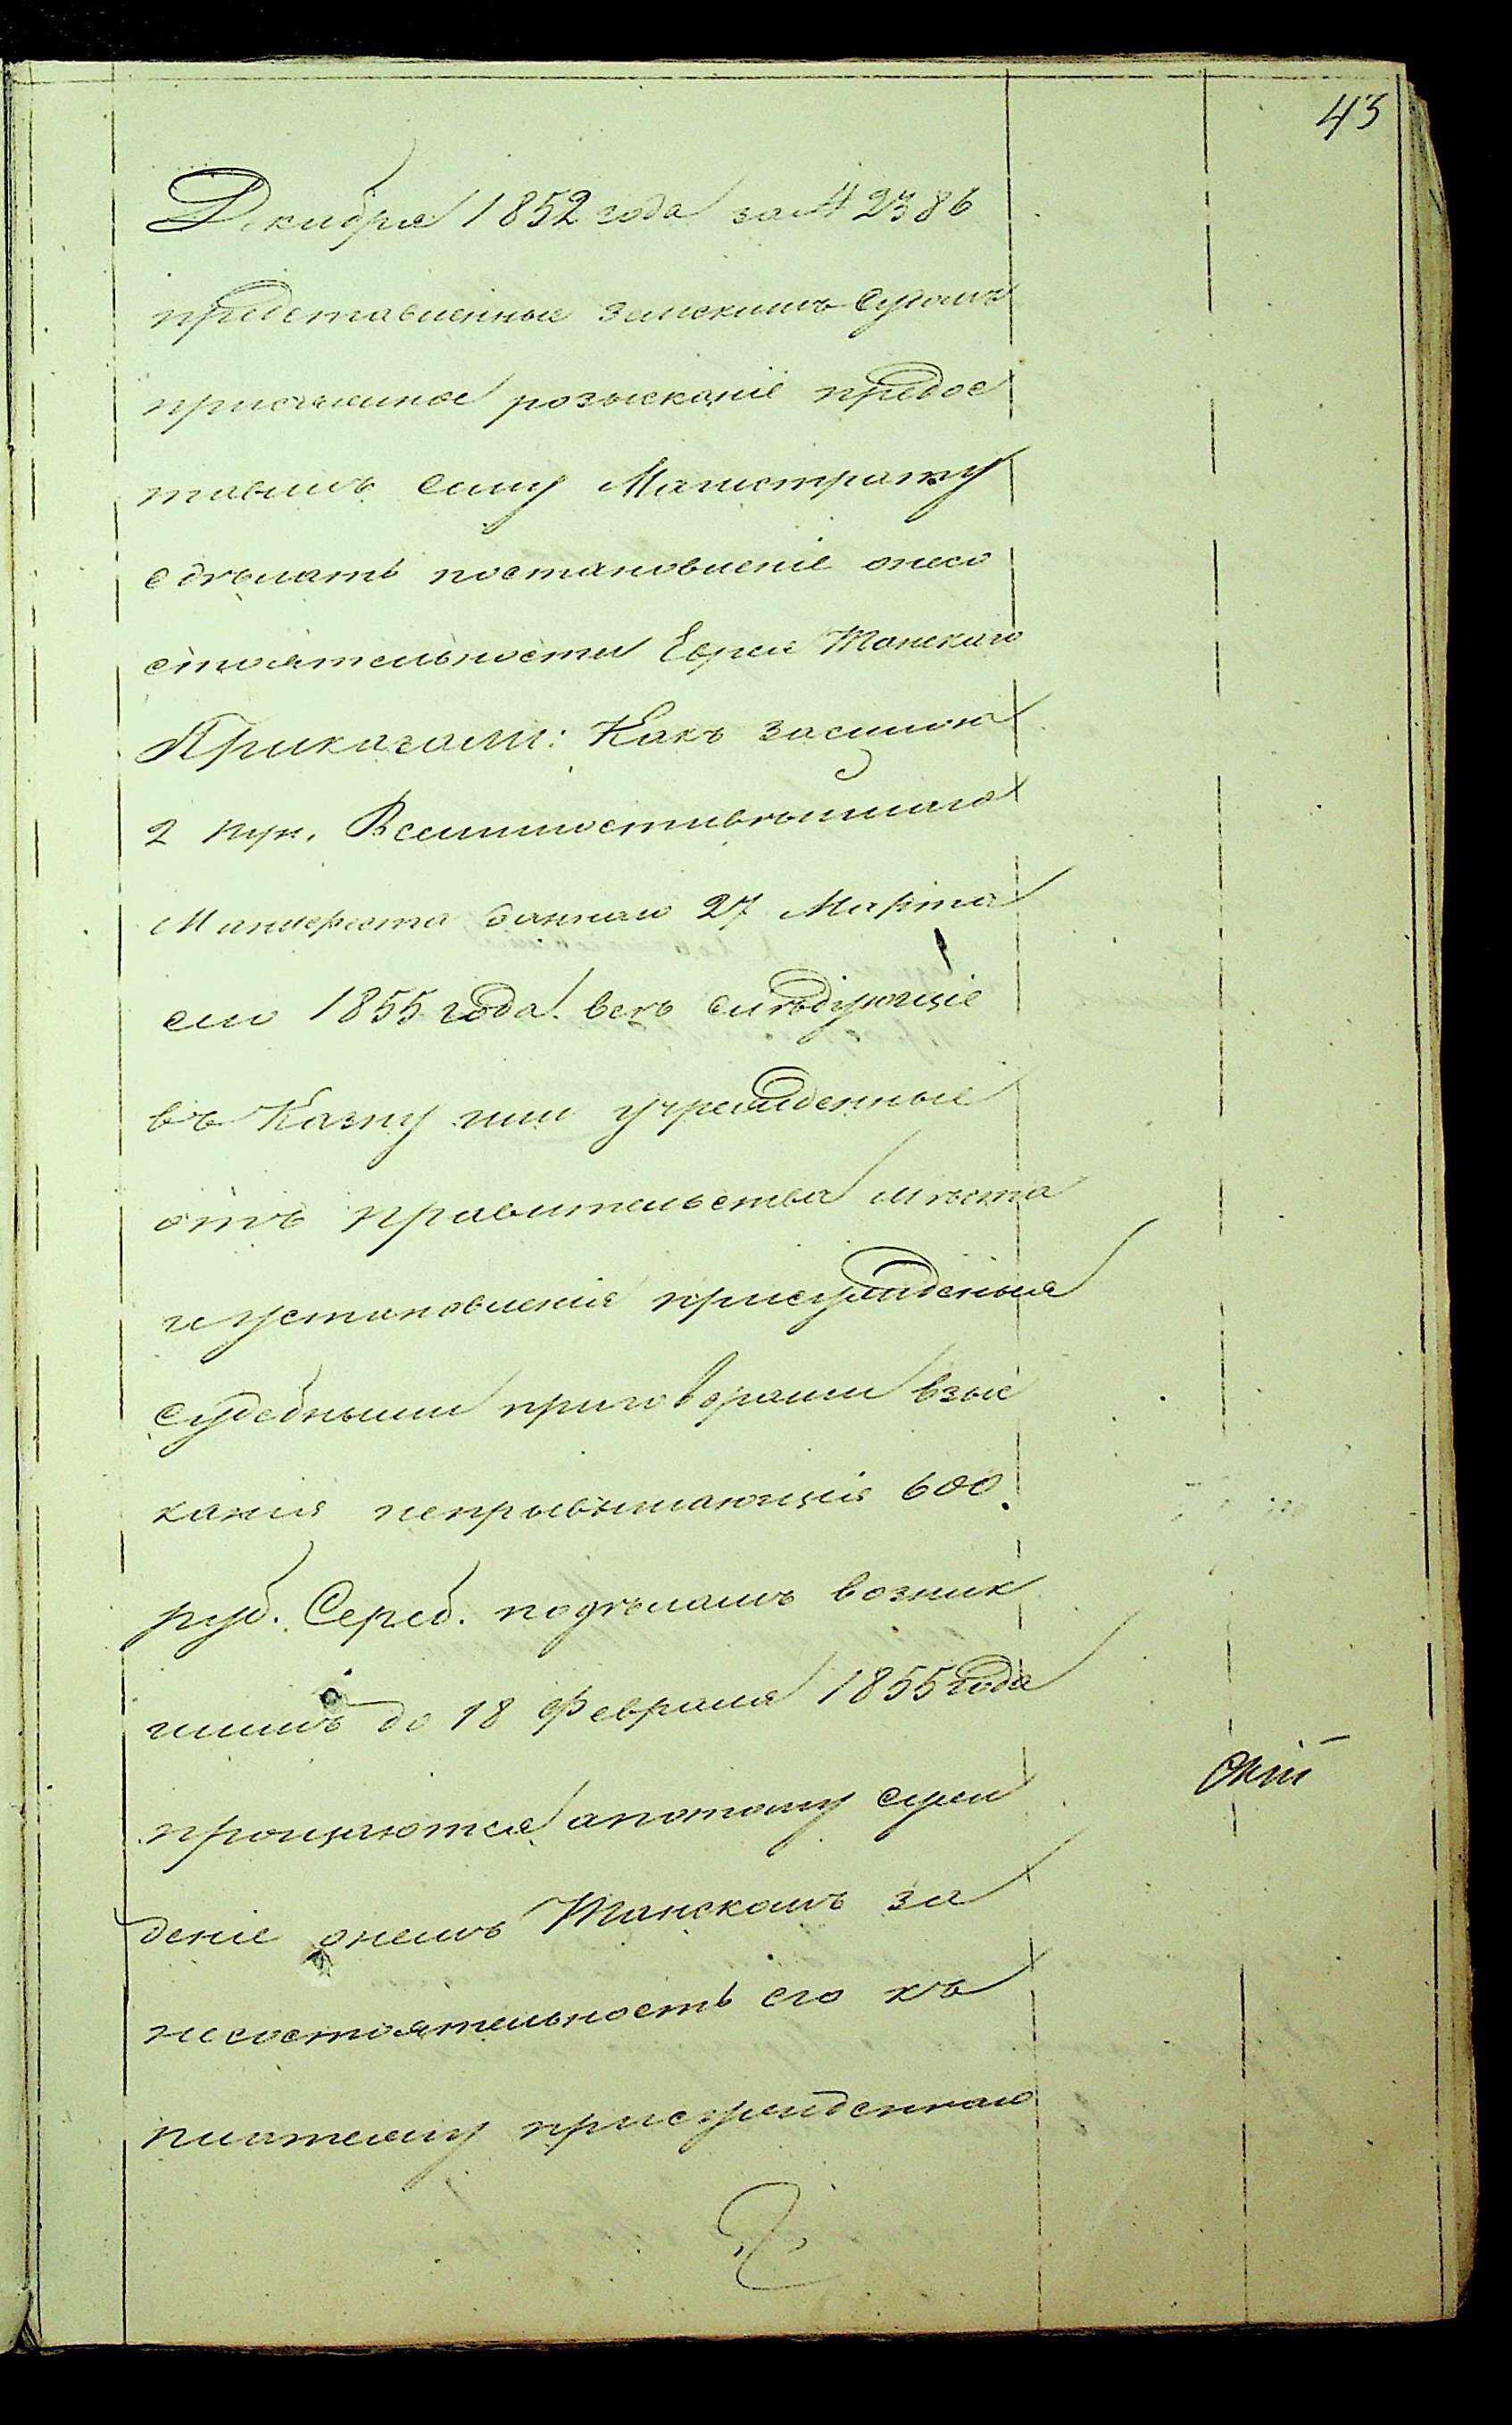 43
Декабря 1852 года за № 2386
представленные Земскимъ Судомъ
присяжное розысканіе предос
тавилъ сему Магистрату
сдѣлать постановленіе онесо
стоятельности Еврея Танскаго
Приказали: Какъ засилою
2 пун. Всемилостивѣйшаго
Манифеста даннаго 27 Марта
сего 1855 года. всѣ слѣдующіе
въ Казну или учрежденные
отъ правительства мѣста
и установленія присужденныя
судебными приговорами взыс
канія непревышающія 600
руб. Сереб. подѣламъ возник
шимъ до 18 Февраля 1855 года
прощаются, апотому суж
деніе онемъ Танскомъ за
несостоятельность его къ
платежу присужденнаго